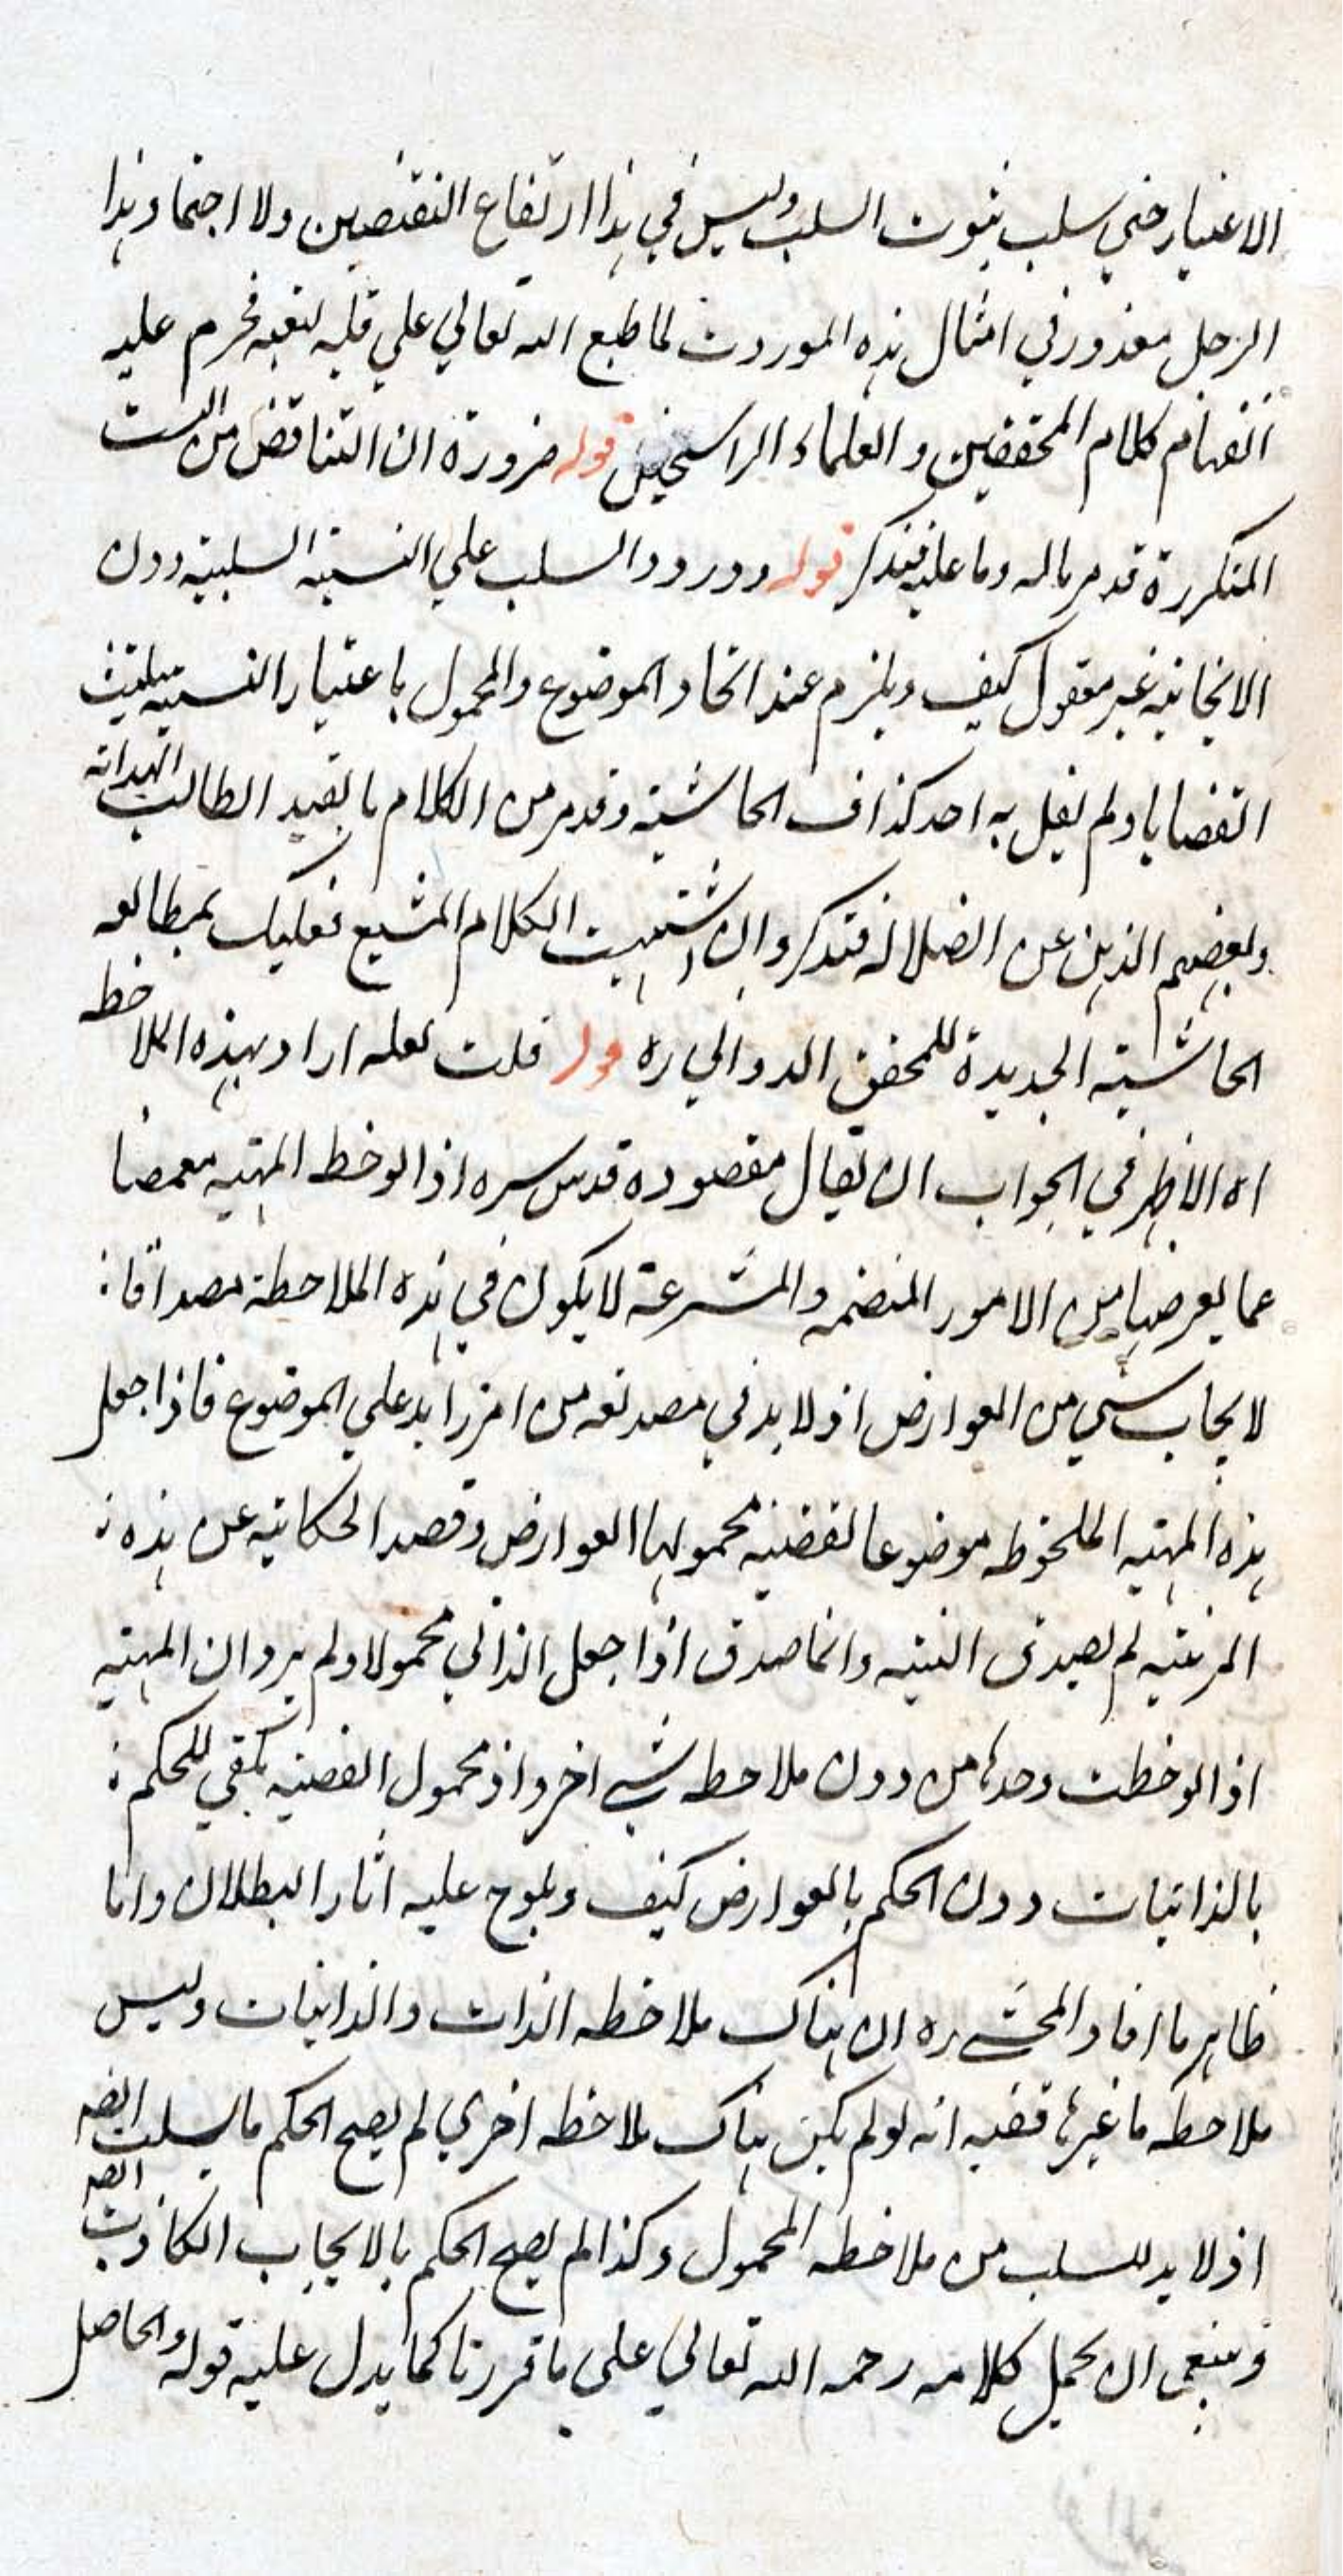 الاعتبار حتي سلب ثبوت السلب وليس في هذا ارتفاع النقيضين ولا اجتما وهذا
الرجل معذور في امثال هذه الموردت لما طبع الله تعالي علي قلبه فحرم عليه
انفهام كلام المحققين و العلماء الراسخين قوله ضرورة ان التناقض من النسب
المتكررة قد مر ماله وما عليه فتذكر قوله وورود السلب علي النسبة السلبية دون
الايجابية غير معقول كيف ويلزم عند اتحاد الموضوع والمحمول باعتبار النسبة تثليث
القضايا ولم يقل به احد كذا في الحاشية وقد مر من الكلام ما يفيد الطالب الهداية
ويعصم الذهن عن الضلالة فتذكر وان اشتهيت الكلام المشبع فعليك بمطالعه
الحاشية الجديدة للمحقق الدواني ره قوله قلت لعله اراد بهذه الملاحظه
اه الاظهر في الجواب ان يقال مقصوده قدس سره اذا لوحظ المهية مغمضا
عما يعرضها من الامور المنضمه والمنتزعة لا يكون في هذه الملاحظة مصداقا
لايجاب شيء من العوارض اذ لا بد في مصداقه من امر زايد علي الموضوع فاذا جعل
هذه المهية الملحوظه موضوعا لقضية محمولها العوارض وقصد الحكاية عن هذه
المرتبة لم يصدق البتة وانما صدق اذا جعل الذاتي محمولا ولم يرد ان المهية
اذا لوحظت وحدها من دون ملاحظه شيء اخر واذ محمول القضية يكفي للحكم
بالذاتيات دون الحكم بالعوارض كيف ويلوح عليه اثار البطلان واما
ظاهر ما افاد المحشي ره ان هناك ملاحظه الذات والذاتيات وليس
ملاحظه ما غيرها ففيه انه لو لم يكن هناك ملاحظه اخري لم يصح الحكم بالسلب ايضا
اذ لا بد للسلب من ملاحظه المحمول وكذا لم يصح الحكم بالايجاب الكاذب ايضا
فينبغي ان يحمل كلامه رحمه الله تعالي علي ما قررنا كما يدل عليه قوله والحاصل